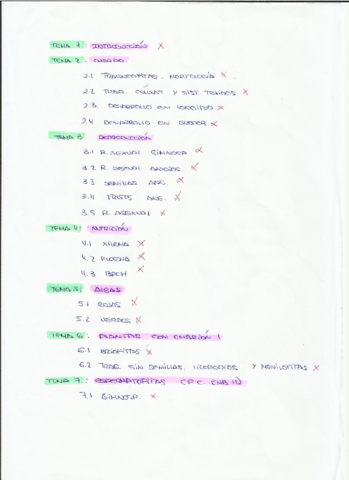 TEMA 1: INTRODUCCIÓN X
TEMA 2: CUERPO
2.1 TRAQUEOFITAS. MORFOLOGÍA X
2.2 X
2.3. DESARROLLO EN LONGITUD X
2.4 DESARROLLO EN GROSOR X
TEMA 3: REPRODUCCIÓN
3.1 R. SEXUAL GIMNOSP X
3.2 R. SEXUAL X
3.3 SEMILLAS ANG. X
3.4 FRUTOS ANG. X
3.5 R. ASEXUAL X
TEMA 4: NUTRICIÓN
4.1 XILEMA X
4.2 FLOEMA X
4.3 X
TEMA 5: ALGAS
5.1 ROJAS X
5.2 VERDES X
TEMA 6: PLANTAS CON EMBRIÓN I
6.1 BRIOFITAS X
6.2 TRAQ. SIN SEMILLAS. Y X
TEMA 7: ESPERMATOFITAS
7.1 GIMNOSP. X